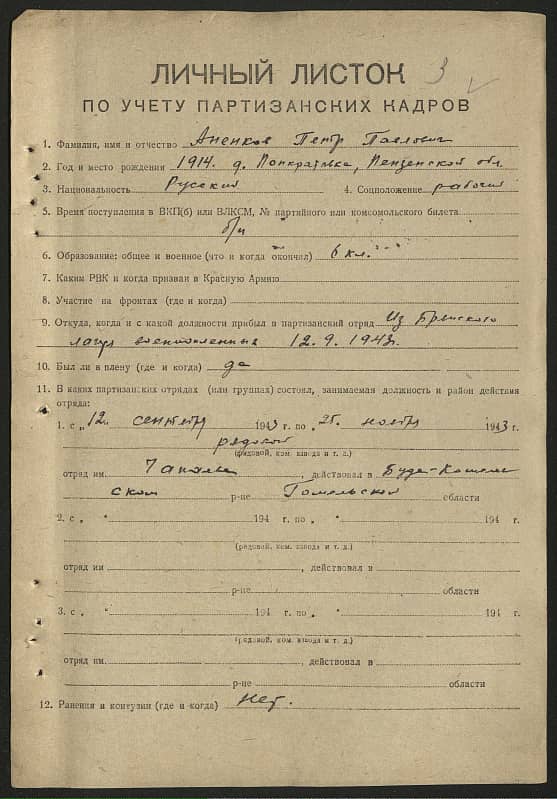 3
ЛИЧНЫЙ ЛИСТОК
ПО УЧЕТУ ПАРТИЗАНСКИХ КАДРОВ
1. Фамилия, имя и отчество Аненков Петр Павлович
2. Год и место рождения 1914. д. Панкратовка, Пензенской обл.
3. Национальность Русский 4. Соцположение рабочий
5. Время поступления в ВКП(б) или ВЛКСМ, № партийного или комсомольского билета
б/п
6. Образование: общее и военное (что и когда окончил) 6 кл.
7. Каким РВК и когда призван в Красную Армию
8. Участие на фронтах (где и когда)
9. Откуда, когда и с какой должности прибыл в партизанский отряд Из Брянского
лагер военнопленных 12.9.1943г.
10. Был ли в плену (где и когда) да
11. В каких партизанских отрядах (или группах) состоял, занимаемая должность и район действия
отряда:
1. с „12. сентября 1943 г. по „25. ноября 1943 г.
рядовой
(рядовой, ком. взвода и т. д.)
отряд им. Чапаева, действовал в Буда-Кошелев
ском р-не Гомельской области
2. с „ “ 194 г. по „ “ 194 г.
(рядовой, ком. взвода и т. д.)
отряд им, действовал в
р-не области
3. с „ “ 194 г. по „ “ 194 г.
(рядовой, ком. взвода и т. д.)
отряд им., действовал в
р-не области
12. Ранения и контузии (где и когда) Нет.